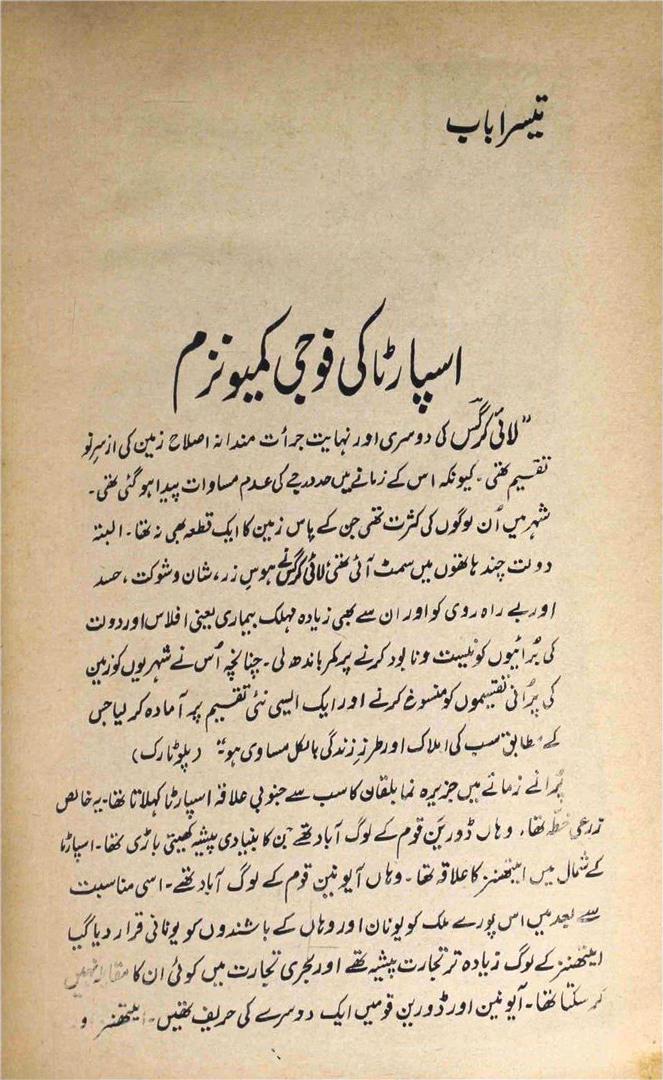 تیسرا باب
اسپارٹا کی فوجی کمیونزم
”لائی کرگس کی دوسری اور نہایت جرأت مندانہ اصلاح زمین کی ازسرِنو
تقسیم تھی۔ کیونکہ اس کے زمانے میں حد درجے کی عدم مساوات پیدا ہو گئی تھی۔
شہر میں اُن لوگوں کی کثرت تھی جن کے پاس زمین کا ایک قطعہ بھی نہ تھا۔ البتہ
دولت چند ہاتھوں میں سمٹ آئی تھی لائی کرگس نے ہوسِ زر، شان و شوکت، حسد
اور بے راہ روی کو اور ان سے بھی زیادہ مہلک بیماری یعنی افلاس اور دولت
کی بُرائیوں کو نیست و نابود کرنے پر کمر باندھ لی۔ چنانچہ اُس نے شہریوں کو زمین
کی پُرانی تقسیموں کو منسوخ کرنے اور ایک ایسی نئی تقسیم پر آمادہ کر لیا جس
کے مطابق سب کی املاک اور طرزِ زندگی بالکل مساوی ہو“ (پلوٹارک)
پُرانے زمانے میں جزیرہ نما بلقان کا سب سے جنوبی علاقہ اسپارٹا کہلاتا تھا۔ یہ خالص
زرعی خطہ تھا، وہاں ڈورین قوم کے لوگ آباد تھے جن کا بنیادی پیشہ کھیتی باڑی تھا۔ اسپارٹا
کے شمال میں ایتھنز کا علاقہ تھا۔ وہاں آیونین قوم کے لوگ آباد تھے۔ اسی مناسبت
سے بعد میں اس پورے ملک کو یونان اور وہاں کے باشندوں کو یونانی قرار دیا گیا
ایتھنز کے لوگ زیادہ تر تجارت پیشہ تھے اور بحری تجارت میں کوئی ان کا مقابلہ نہیں
کر سکتا تھا۔ آیونین اور ڈورین قومیں ایک دوسرے کی حریف تھیں۔ ایتھنز و